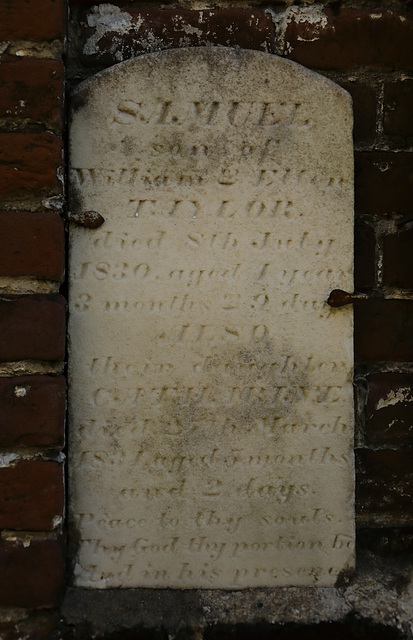 SAMUEL
son of
William & Ellen
TAYLOR.
died 8th July
1830. aged 1 year
3 months & 9 days
ALSO
their daughter
CATHERINE
died 27th March
1831 aged 5 months
and 2 days.
Peace to thy souls.
Thy God thy portion be
And in his presence